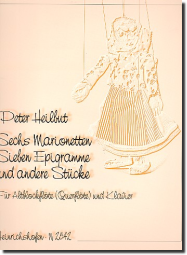 Peter Heilbut
Sechs Marionetten
Sieben Epigramme
und andere Stücke
Für Altblockflöte (Querflöte) und Klavier
Heinrichshofen · N 2642